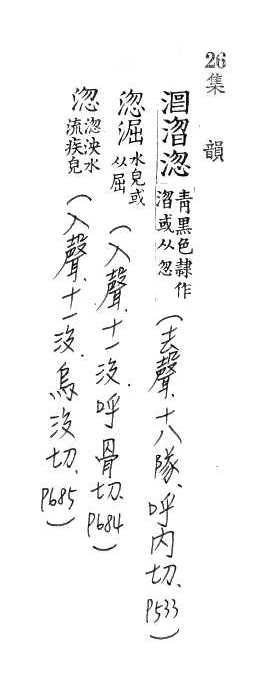 26集韻
𣶼淴淴青黑色隸作淴或从忽(去聲、十八隊、呼內切、P533)
淴淈水皃或从屈(入聲、十一沒、呼骨切、P684)
淴淴泱水流疾皃(入聲、十一沒、烏沒切、P685)